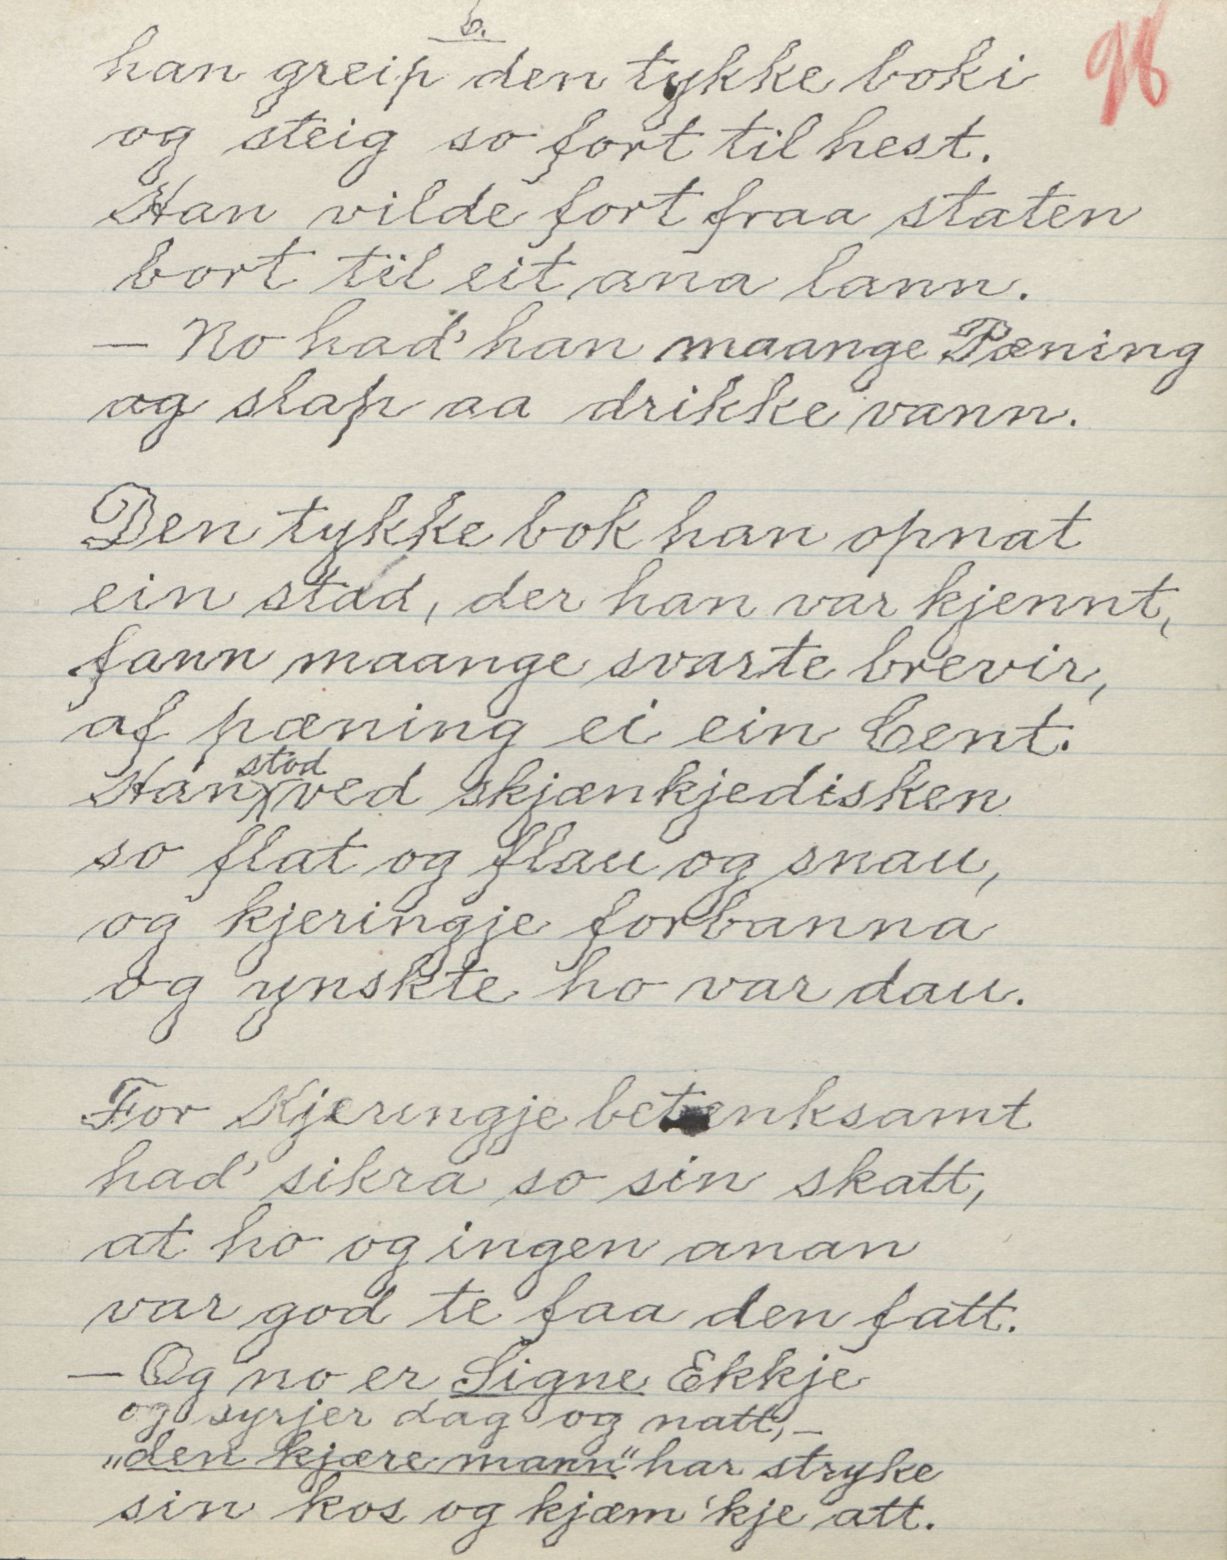 6.
98
han greip den tykke boki
og steig so fort til hest.
Han vilde fort fraa staten
bort til eit ana lann.
— No had' han maange Pæning
og slap aa drikke vann.
Den tykke bok han opnat
ein stad, der han var kjennt,
fann maange svarte brevir,
af pæning ei ein Cent.
Han stod ved skjænkjedisken
so flat og flau og snau,
og kjeringje forbanna
og ynskte ho var dau.
For Kjeringje betenksamt
had' sikra so sin skatt,
at ho og ingen anan
var god te faa den fatt.
— Og no er Signe Ekkje
og syrjer dag og natt, —
„den kjære mann" har stryke
sin kos og kjæm 'kje att.